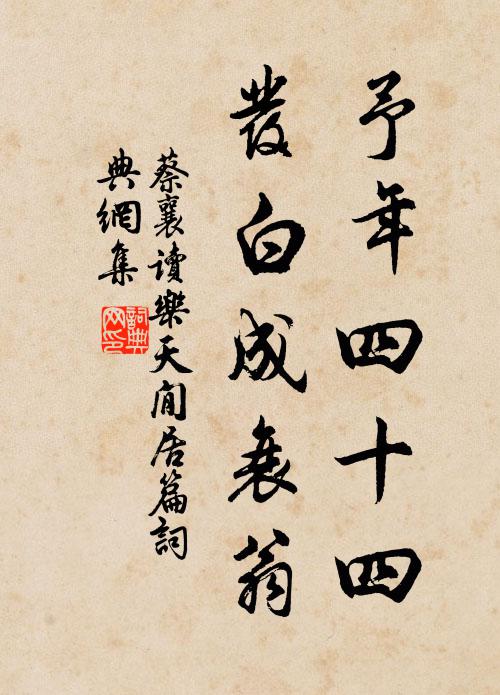 予年四十四
發白成衰翁
蔡襄讀樂天閒居篇詞
典網集
詞典网印